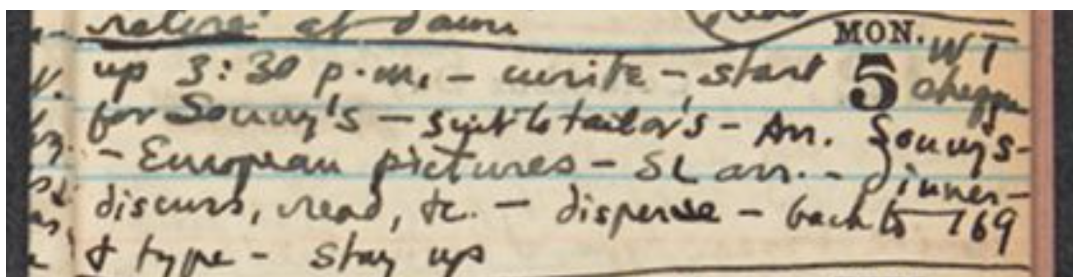 retire at dawn
MON. WT
up 3:30 p.m. — write — start 5 cheque
for Sonny's — suit to tailor's — Arr. Sonny's —
— European pictures — SL arr. — dinner —
discuss, read, &c. — disperse — back to 169
& type — stay up